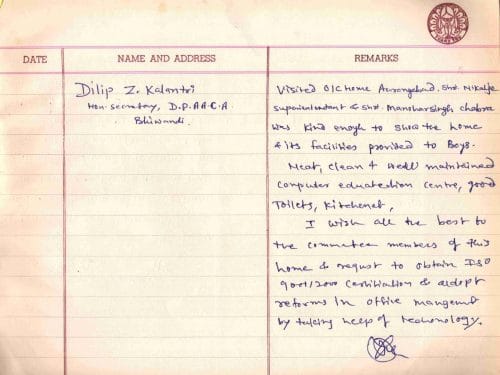 DATE
NAME AND ADDRESS
REMARKS
Dilip Z. Kalantri
Hon. Secretary, D.P.AA.C.A
Bhiwandi.
Visited O/C Home Aurangabad. Shri. N.Kalje
superientendent & Shri. Manoharsingh chabra
was kind enogh to show the home
& its facilities provided to Boys.
Neat, clean & well maintained
computer educatetion centre, good
Toilets, Kitchenet,
I wish all the best to
the commetee members of this
home & requst to obtain ISO
9001/2000 Certification & addopt
reforms in office mangemnt
by taking help of technology.